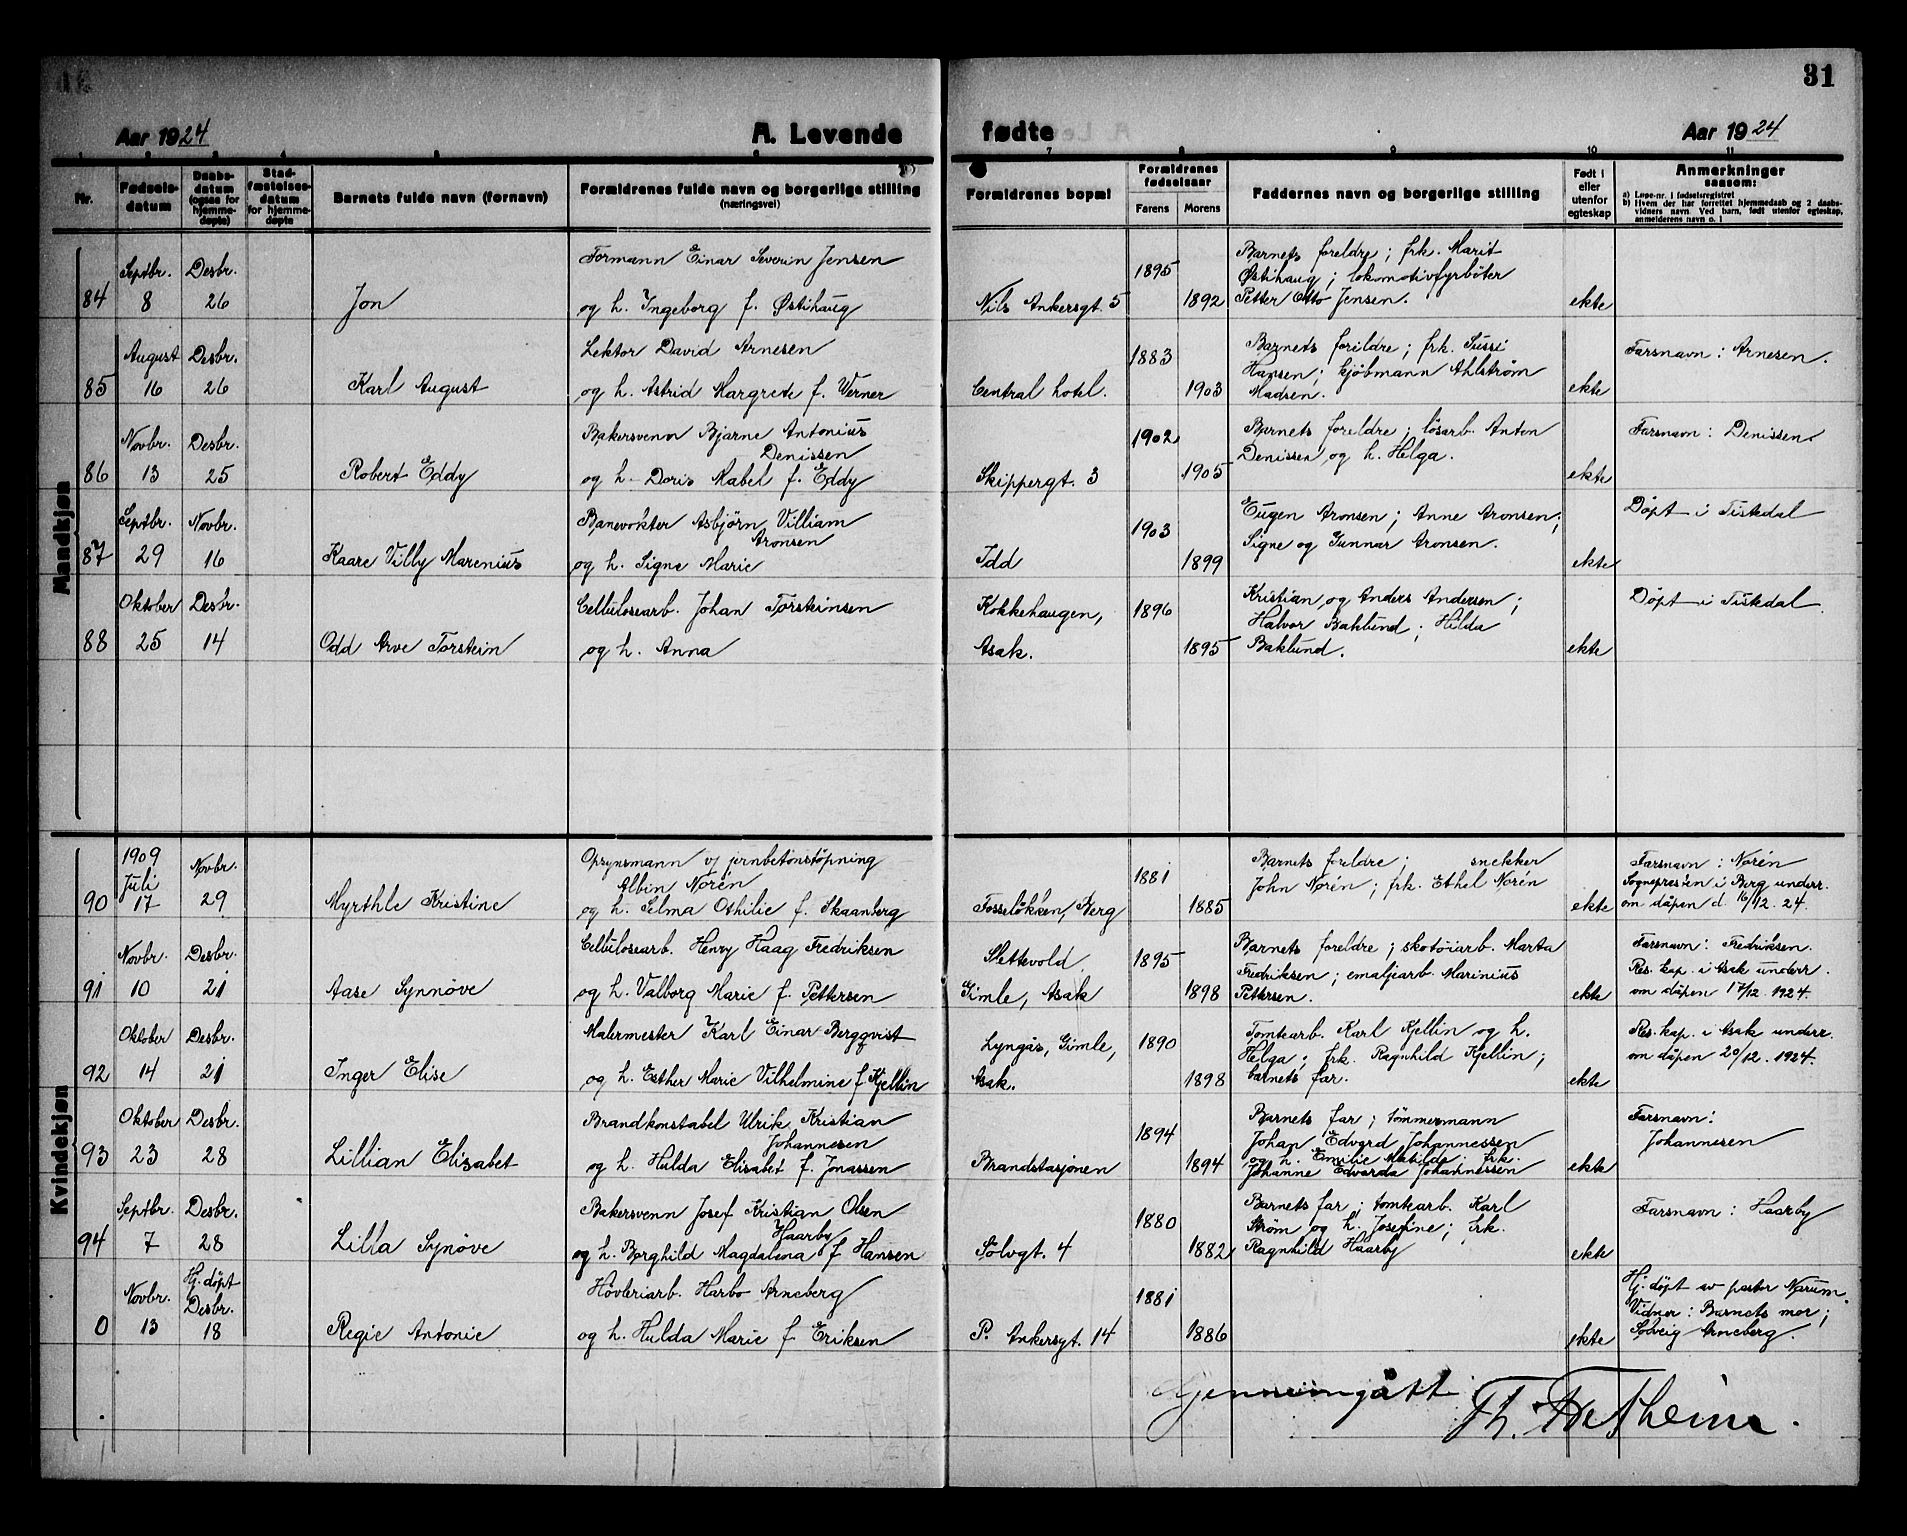 31
Aar 1924
A. Levende
fødte
Aar 1924
1 2 3 4 5 6 7 8 9 10 11
Nr.
Fødsels-
datum
Daabs-
datum
(ogsaa for
hjemme-
døpte)
Stad-
fæstelses-
datum
for hjemme-
døpte
Barnets fulde navn (fornavn)
Forældrenes fulde navn og borgerlige stilling
(næringsvei)
Forældrenes bopæl
Forældrenes
fødselsaar
Farens Morens
Faddernes navn og borgerlige stilling
Født i
eller
utenfor
egteskap
Anmerkninger
saasom:
a) Løpe-nr. i fødselsregistret
b) Hvem der har forrettet hjemmedaab og 2 daabs-
vidners navn. Ved barn, født utenfor egteskap,
anmelderens navn o. l
Mandkjøn
84
Septbr.
8
Desbr.
26
Jon
Formann Einar Severin Jensen
og h. Ingeborg f. Østihaug
Nils Ankersgt. 5
1895
1892
Barnets foreldre; frk. Marit
Østihaug; lokomotivfyrbøter
Petter Otto Jensen.
ekte
85
August
16
Desbr.
26
Karl August
Lektor David Arnesen
og h. Astrid Margrete f. Werner
Central hotel.
1883
1903
Barnets foreldre; frk. Sussi
Hansen; kjøbmann Ahlström
Madsen.
ekte
Farsnavn: Arnesen.
86
Novbr.
13
Desbr.
25
Robert Eddy
Bakersvenn Bjarne Antonius
Denissen
og h. Doris Mabel f. Eddy
Skippergt. 3
1902
1905
Barnets foreldre; løsarb. Anton
Denissen og h. Helga.
ekte
Farsnavn: Denissen.
87
Septbr.
29
Novbr.
16
Kaare Villy Marenius
Banevokter Asbjörn Villiam
Aronsen
og h. Signe Marie
Idd
1903
1899
Eugen Aronsen; Anne Aronsen;
Signe og Gunnar Aronsen.
ekte
Døpt i Tistedal
88
Oktober
25
Desbr.
14
Odd Arve Torstein
Cellulosearb. Johan Torsteinsen
og h. Anna
Kokkehaugen,
Asak.
1896
1895
Kristian og Anders Andersen;
Halvor Baklund; Hilda
Baklund.
ekte
Døpt i Tistedal.
Kvindekjøn
90
1909
Juli
17
Novbr.
29
Myrthle Kristine
Opsynsmann v/ jernbetonstøpning
Albin Norén
og h. Selma Othilie f. Skaanberg
Fosseløkken, Berg
1881
1885
Barnets foreldre; snekker
John Norén; frk. Ethel Norén
ekte
Farsnavn: Norén
Sognepresten i Berg underr.
om dåpen d. 16/12. 24.
91
Novbr.
10
Desbr.
21
Aase Synnøve
Cellulosearb. Henry Haag Fredriksen
og h. Valborg Marie f. Pettersen
Slettevold,
Gimle, Asak
1895
1898
Barnets foreldre; skotøiarb. Marta
Fredriksen; emaljearb. Marinius
Pettersen.
ekte
Farsnavn: Fredriksen.
Res. kap. i Asak underr.
om dåpen 17/12. 1924.
92
Oktober
14
Desbr.
21
Inger Elise
Malermester Karl Einar Bergqvist
og h. Esther Marie Vilhelmine f. Kjellin
Lyngås, Gimle,
Asak.
1890
1898
Tomtearb. Karl Kjellin og h.
Helga; frk. Ragnhild Kjellin;
barnets far.
ekte
Res. kap. i Asak underr.
om dåpen 20/12. 1924.
93
Oktober
23
Desbr.
28
Lillian Elisabet
Brandkonstabel Ulrik Kristian
Johannesen
og h. Hulda Elisabet f. Jonassen
Brandstasjonen
1894
1894
Barnets far; tømmermann
Johan Edvard Johannessen
og h. Emilie Matilde; frk.
Johanne Edvarda Johannessen
ekte
Farsnavn:
Johannesen
94
Septbr.
7
Desbr.
28
Lilla Synøve
Bakersvenn Josef Kristian Olsen
Haarby
og h. Borghild Magdalena f. Hansen
Sølvgt. 4
1880
1882
Barnets far; tomtearb. Karl
Strøm og h. Josefine; frk.
Ragnhild Haarby
ekte
Farsnavn: Haarby
0
Novbr.
13
Hj. døpt
Desbr.
18
Regie Antonie
Høvleriarb. Harbo Arneberg
og h. Hulda Marie f. Eriksen
P. Ankersgt. 14
1881
1886
ekte
Hj. døpt av pastor Narum.
Vidner: Barnets mor;
Solveig Arneberg.
Gjennemgått
Th. Fretheim.